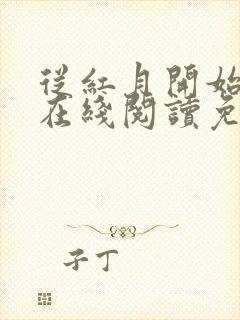 從紅月開始
在綫閱讀免
子丁